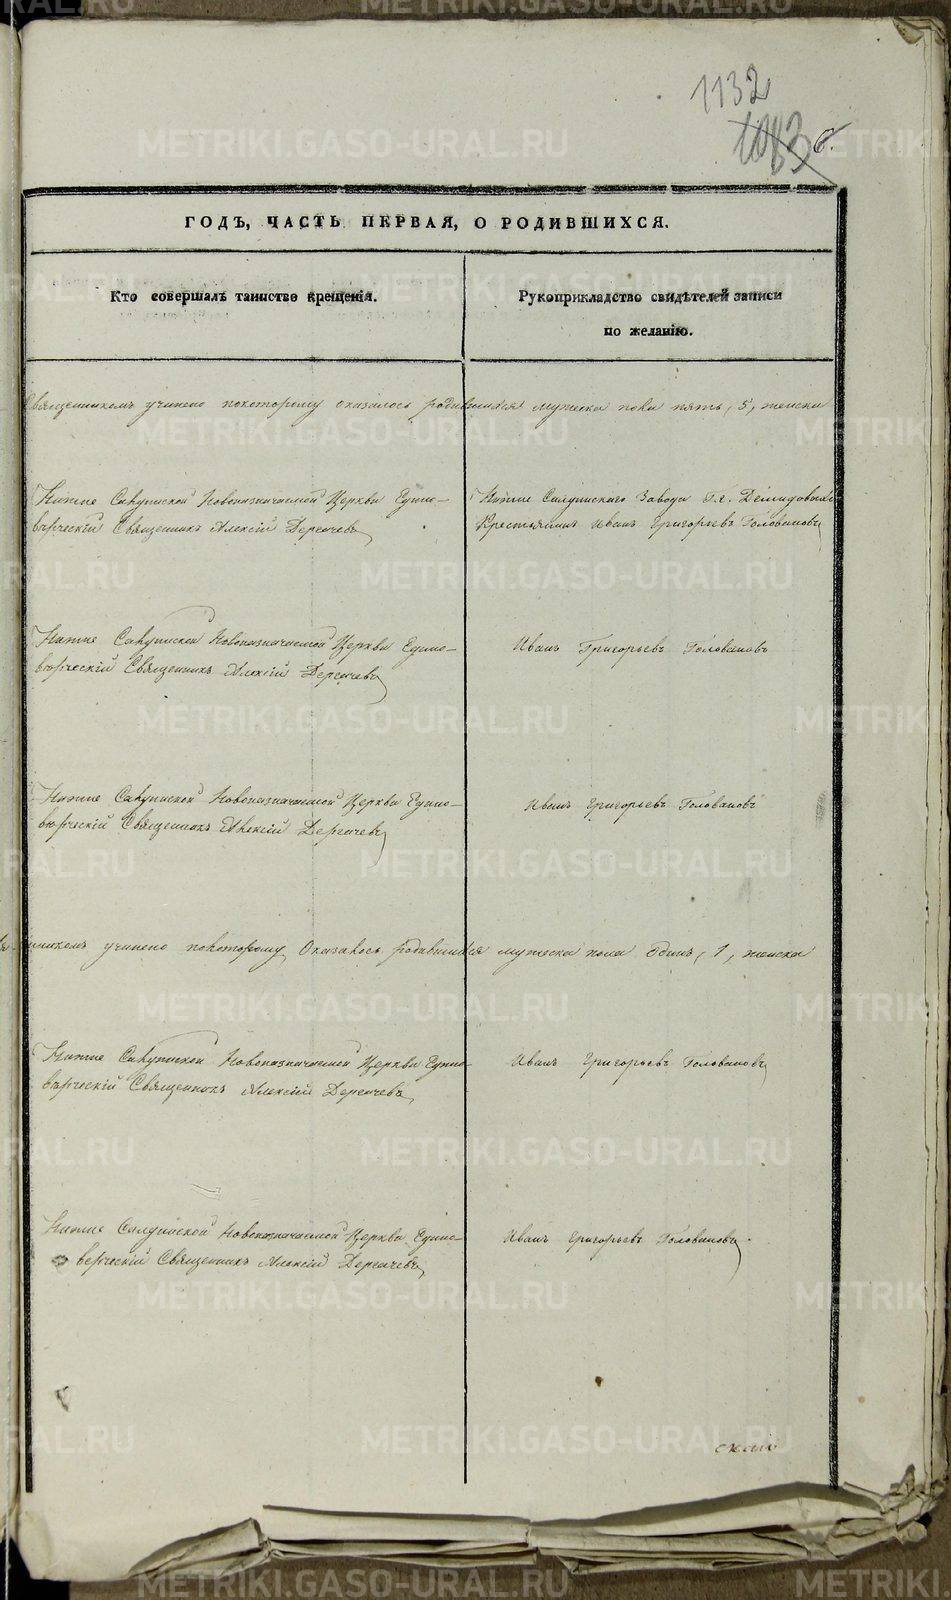 1132
1083 б.
ГОДЪ, ЧАСТЬ ПЕРВАЯ, О РОДИВШИХСЯ.
Кто совершалъ таинство крещенія.
Рукоприкладство свидѣтелей записи
по желанію.
Священникомъ учинено покоторому оказалось родившихся мужеска пола пять, 5, женска
Нижне Салдинской Новоназначаемой Церкви Едино-
вѣрческій Священникъ Алексій Дерсачевъ
Нижне Салдинскаго Завода Гг. Демидовыхъ
Крестьянинъ Иванъ Григорьевъ Головановъ
Нижне Салдинской Новоназначаемой Церкви Едино-
вѣрческій Священникъ Алексій Дерсачевъ
Иванъ Григорьевъ Головановъ
Нижне Салдинской Новоназначаемой Церкви Едино-
вѣрческій Священникъ Алексій Дерсачевъ
Иванъ Григорьевъ Головановъ
учинено покоторому Оказалось родившихся мужеска пола Одинъ, 1, женска
Нижне Салдинской Новоназначаемой Церкви Едино-
вѣрческій Священникъ Алексій Дерсачевъ
Иванъ Григорьевъ Головановъ
Нижне Салдинской Новоназначаемой Церкви Едино-
верческій Священникъ Алексій Дерсачевъ
Иванъ Григорьевъ Головановъ
METRIKI.GASO-URAL.RU